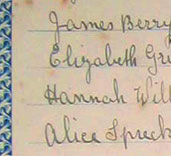 James Berry
Elizabeth Gri
Hannah Will
Alice Spreck